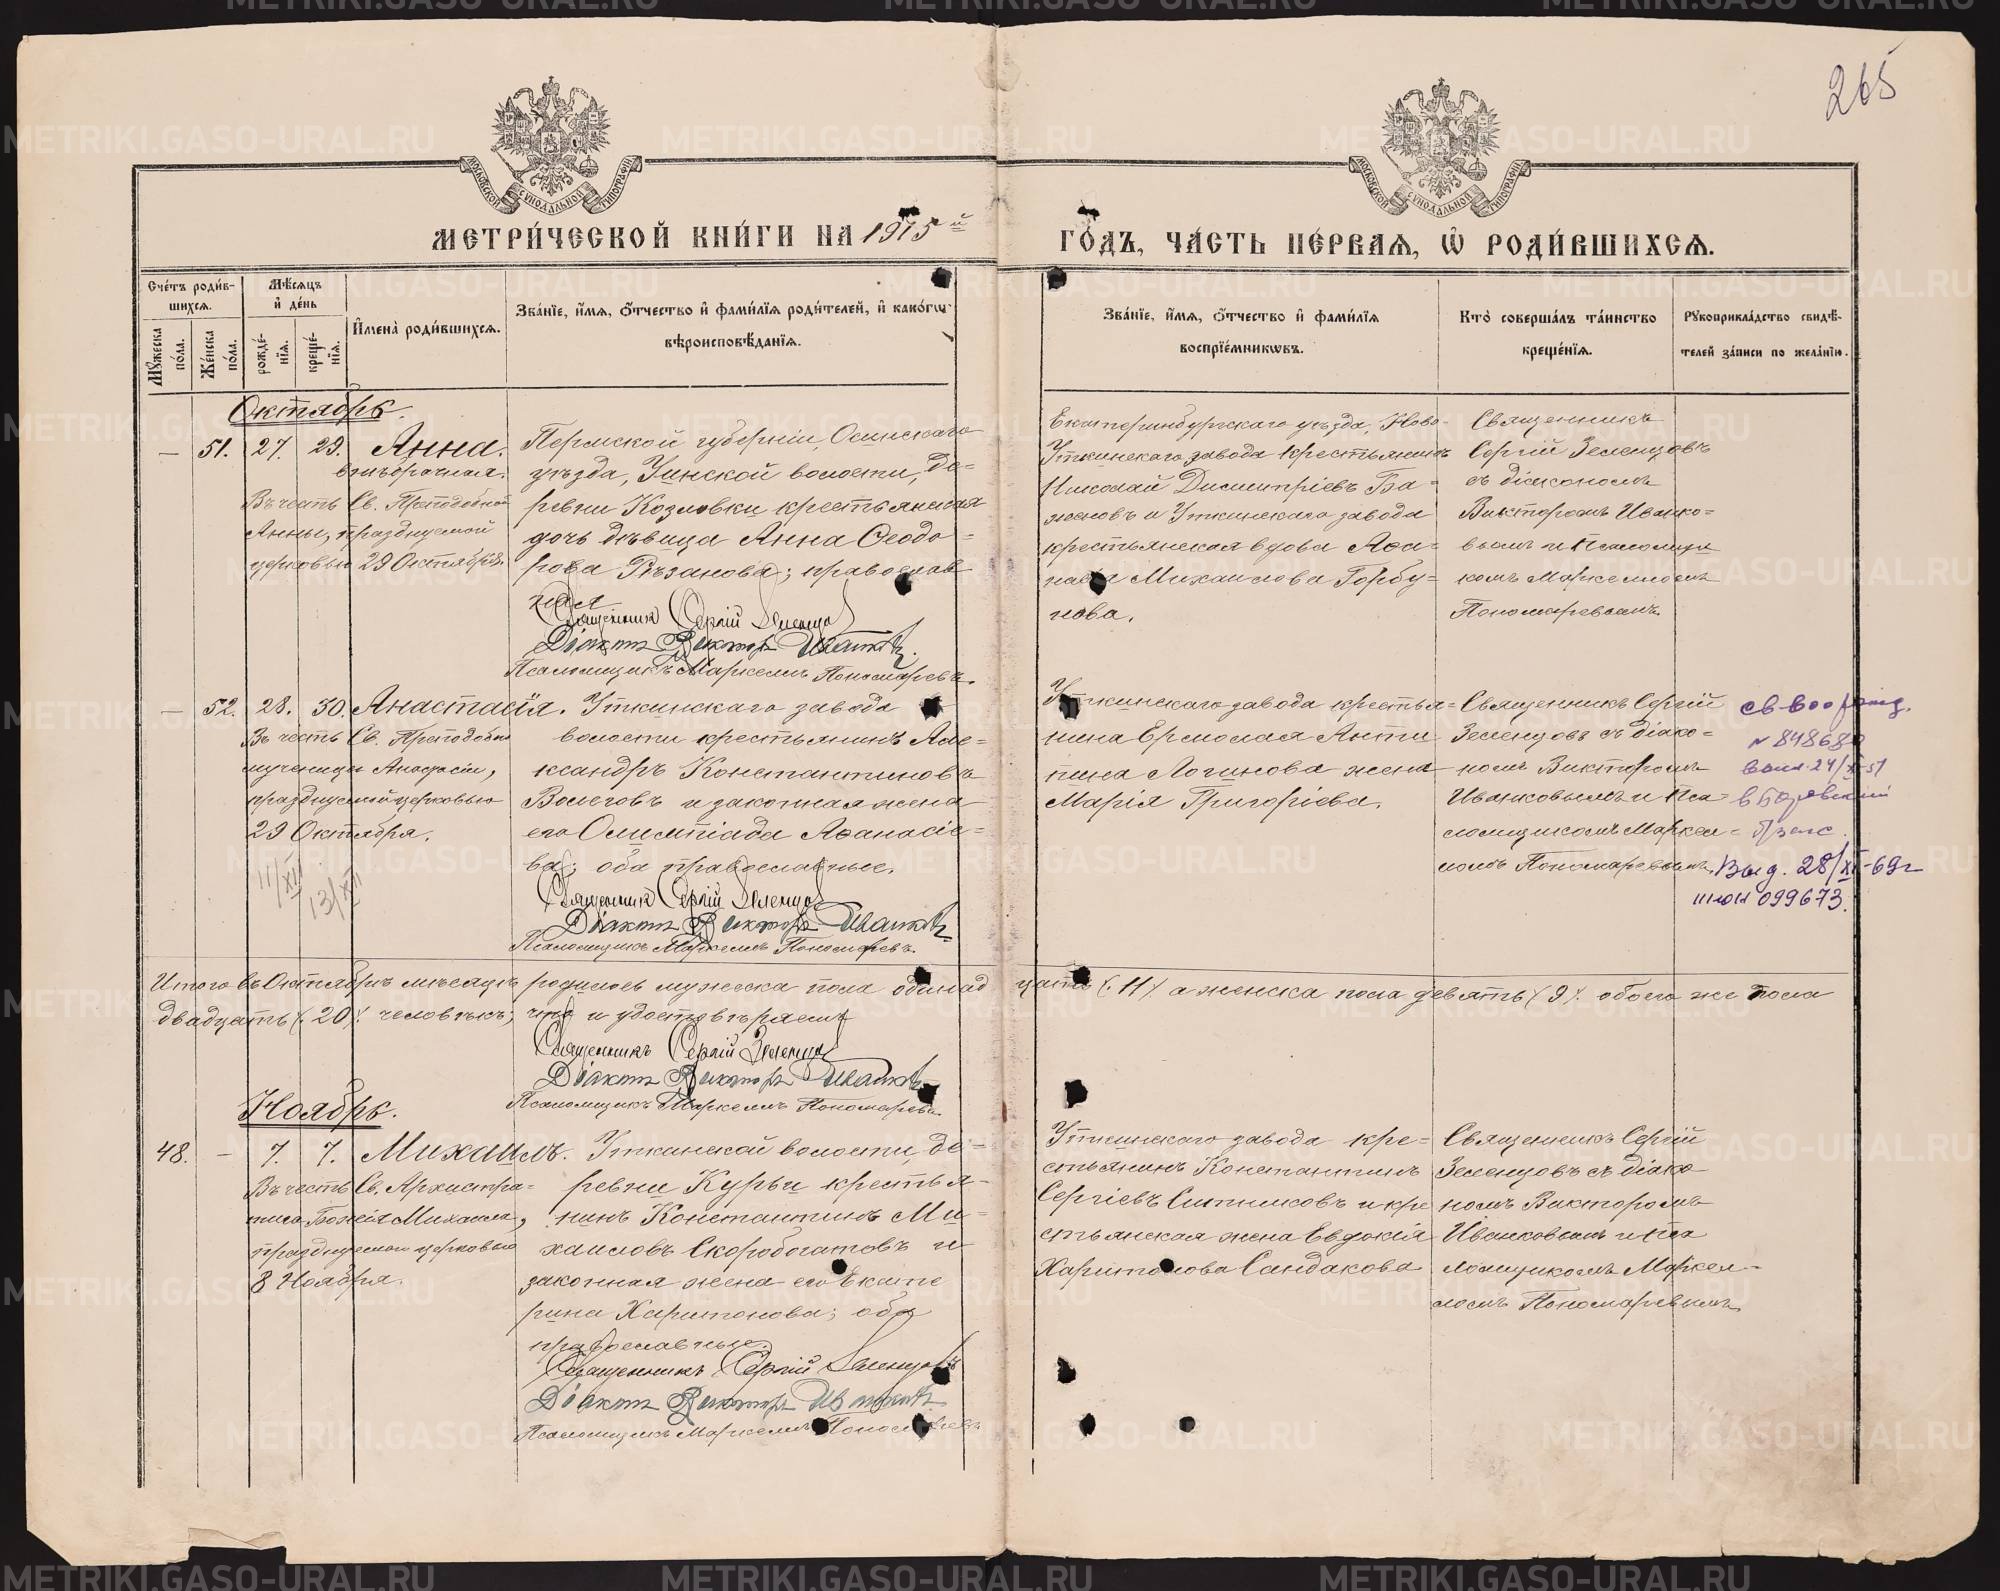 265
МОСКОВСКОЙ СѴНОДАЛЬНОЙ ТИПОГРАФІИ
МОСКОВСКОЙ СѴНОДАЛЬНОЙ ТИПОГРАФІИ
МЕТРИ́ЧЕСКОЙ КНИ́ГИ НА 1915й ГО́ДЪ, ЧА́СТЬ ПЕ́РВАѦ, Ѡ РОДИ́ВШИХСѦ.
Сче́тъ роди́вшихсѧ.
Мѣ́сѧцъ и де́нь
Мꙋ́жеска по́ла.
Же́нска по́ла.
рожде́нїѧ.
креще́нїѧ.
Имена̀ роди́вшихсѧ.
Зва́нїе, и́мѧ, ѻ́тчество и фами́лїѧ роди́телей, и како́гѡ
вѣроисповѣ́данїѧ.
Зва́нїе, и́мѧ, ѻ́тчество и фами́лїѧ
воспрїе́мникѡвъ.
Кто̀ соверша́лъ та́инство
креще́нїѧ.
Рꙋкоприкла́дство свидѣ́-
телей за́писи по жела́нїю.
Октябрь.
— 51. 27. 29. Анна.
внѣбрачная.
Въ честь Св. Преподобной
Анны, празднуемой
церковью 29 Октября.
Пермской губерніи, Осинскаго
уѣзда, Уинской волости, де-
ревни Козловки крестьянская
дочь дѣвица Анна Ѳеодо-
рова Рѣзанова; православ
ная
Священникъ Сергій Зеленцовъ
Діаконъ Викторъ Иванковъ.
Псаломщикъ Маркеллъ Пономаревъ.
Екатеринбургскаго уѣзда, Ново-
Уткинскаго завода крестьянинъ
Николай Димитріевъ Ба-
женовъ и Уткинскаго завода
крестьянская вдова Аѳа-
насія Михаилова Горбу-
нова.
Священникъ
Сергій Зеленцовъ
съ діакономъ
Викторомъ Иванко-
вымъ и псаломщи
комъ Маркелломъ
Пономаревымъ.
— 52. 28. 30. Анастасія.
Въ честь Св. Преподобно
мученицы Анастасіи,
празднуемой церковью
29 Октября.
11/XII
13/XII
Уткинскаго завода
волости крестьянинъ Але-
ксандръ Константиновъ
Волеговъ и законная жена
его Олимпіада Аѳанасіе-
ва; оба православные.
Священникъ Сергій Зеленцовъ
Діаконъ Викторъ Иванковъ
Псаломщикъ Маркеллъ Пономаревъ.
Уткинскаго завода крестья-
нина Ермолая Анти
пина Логинова жена
Марія Григоріева.
Священникъ Сергій
Зеленцовъ съ діако-
номъ Викторомъ
Иванковымъ и Пса-
ломщикомъ Маркел-
ломъ Пономаревымъ.
св-во о рожд.
Выд. 28/XI-69г
099673.
Итого въ Октябрѣ мѣсяцѣ родилось мужеска пола одиннад цать (11) а женска пола девять (9) обоего же пола
двадцать (20) человѣкъ; что и удостовѣряемъ
Священникъ Сергій Зеленцовъ
Діаконъ Викторъ Иванковъ
Псаломщикъ Маркеллъ Пономаревъ.
Ноябрь.
48. — 7. 7. Михаилъ.
Въ честь Св. Архистра-
тига Божія Михаила,
празднуемаго церковью
8 Ноября.
Уткинской волости, де-
ревни Курьи крестья-
нинъ Константинъ Ми-
хаиловъ Скоробогатовъ и
законная жена его Екате
рина Харитонова; оба
православные.
Священникъ Сергій Зеленцовъ
Діаконъ Викторъ Иванковъ.
Псаломщикъ Маркеллъ Пономаревъ
Уткинскаго завода кре-
стьянинъ Константинъ
Сергіевъ Ситниковъ и кре
стьянская жена Евдокія
Харитонова Сандакова
Священникъ Сергій
Зеленцовъ съ діако
номъ Викторомъ
Иванковымъ и пса
ломщикомъ Маркел-
ломъ Пономаревымъ
METRIKI.GASO-URAL.RU